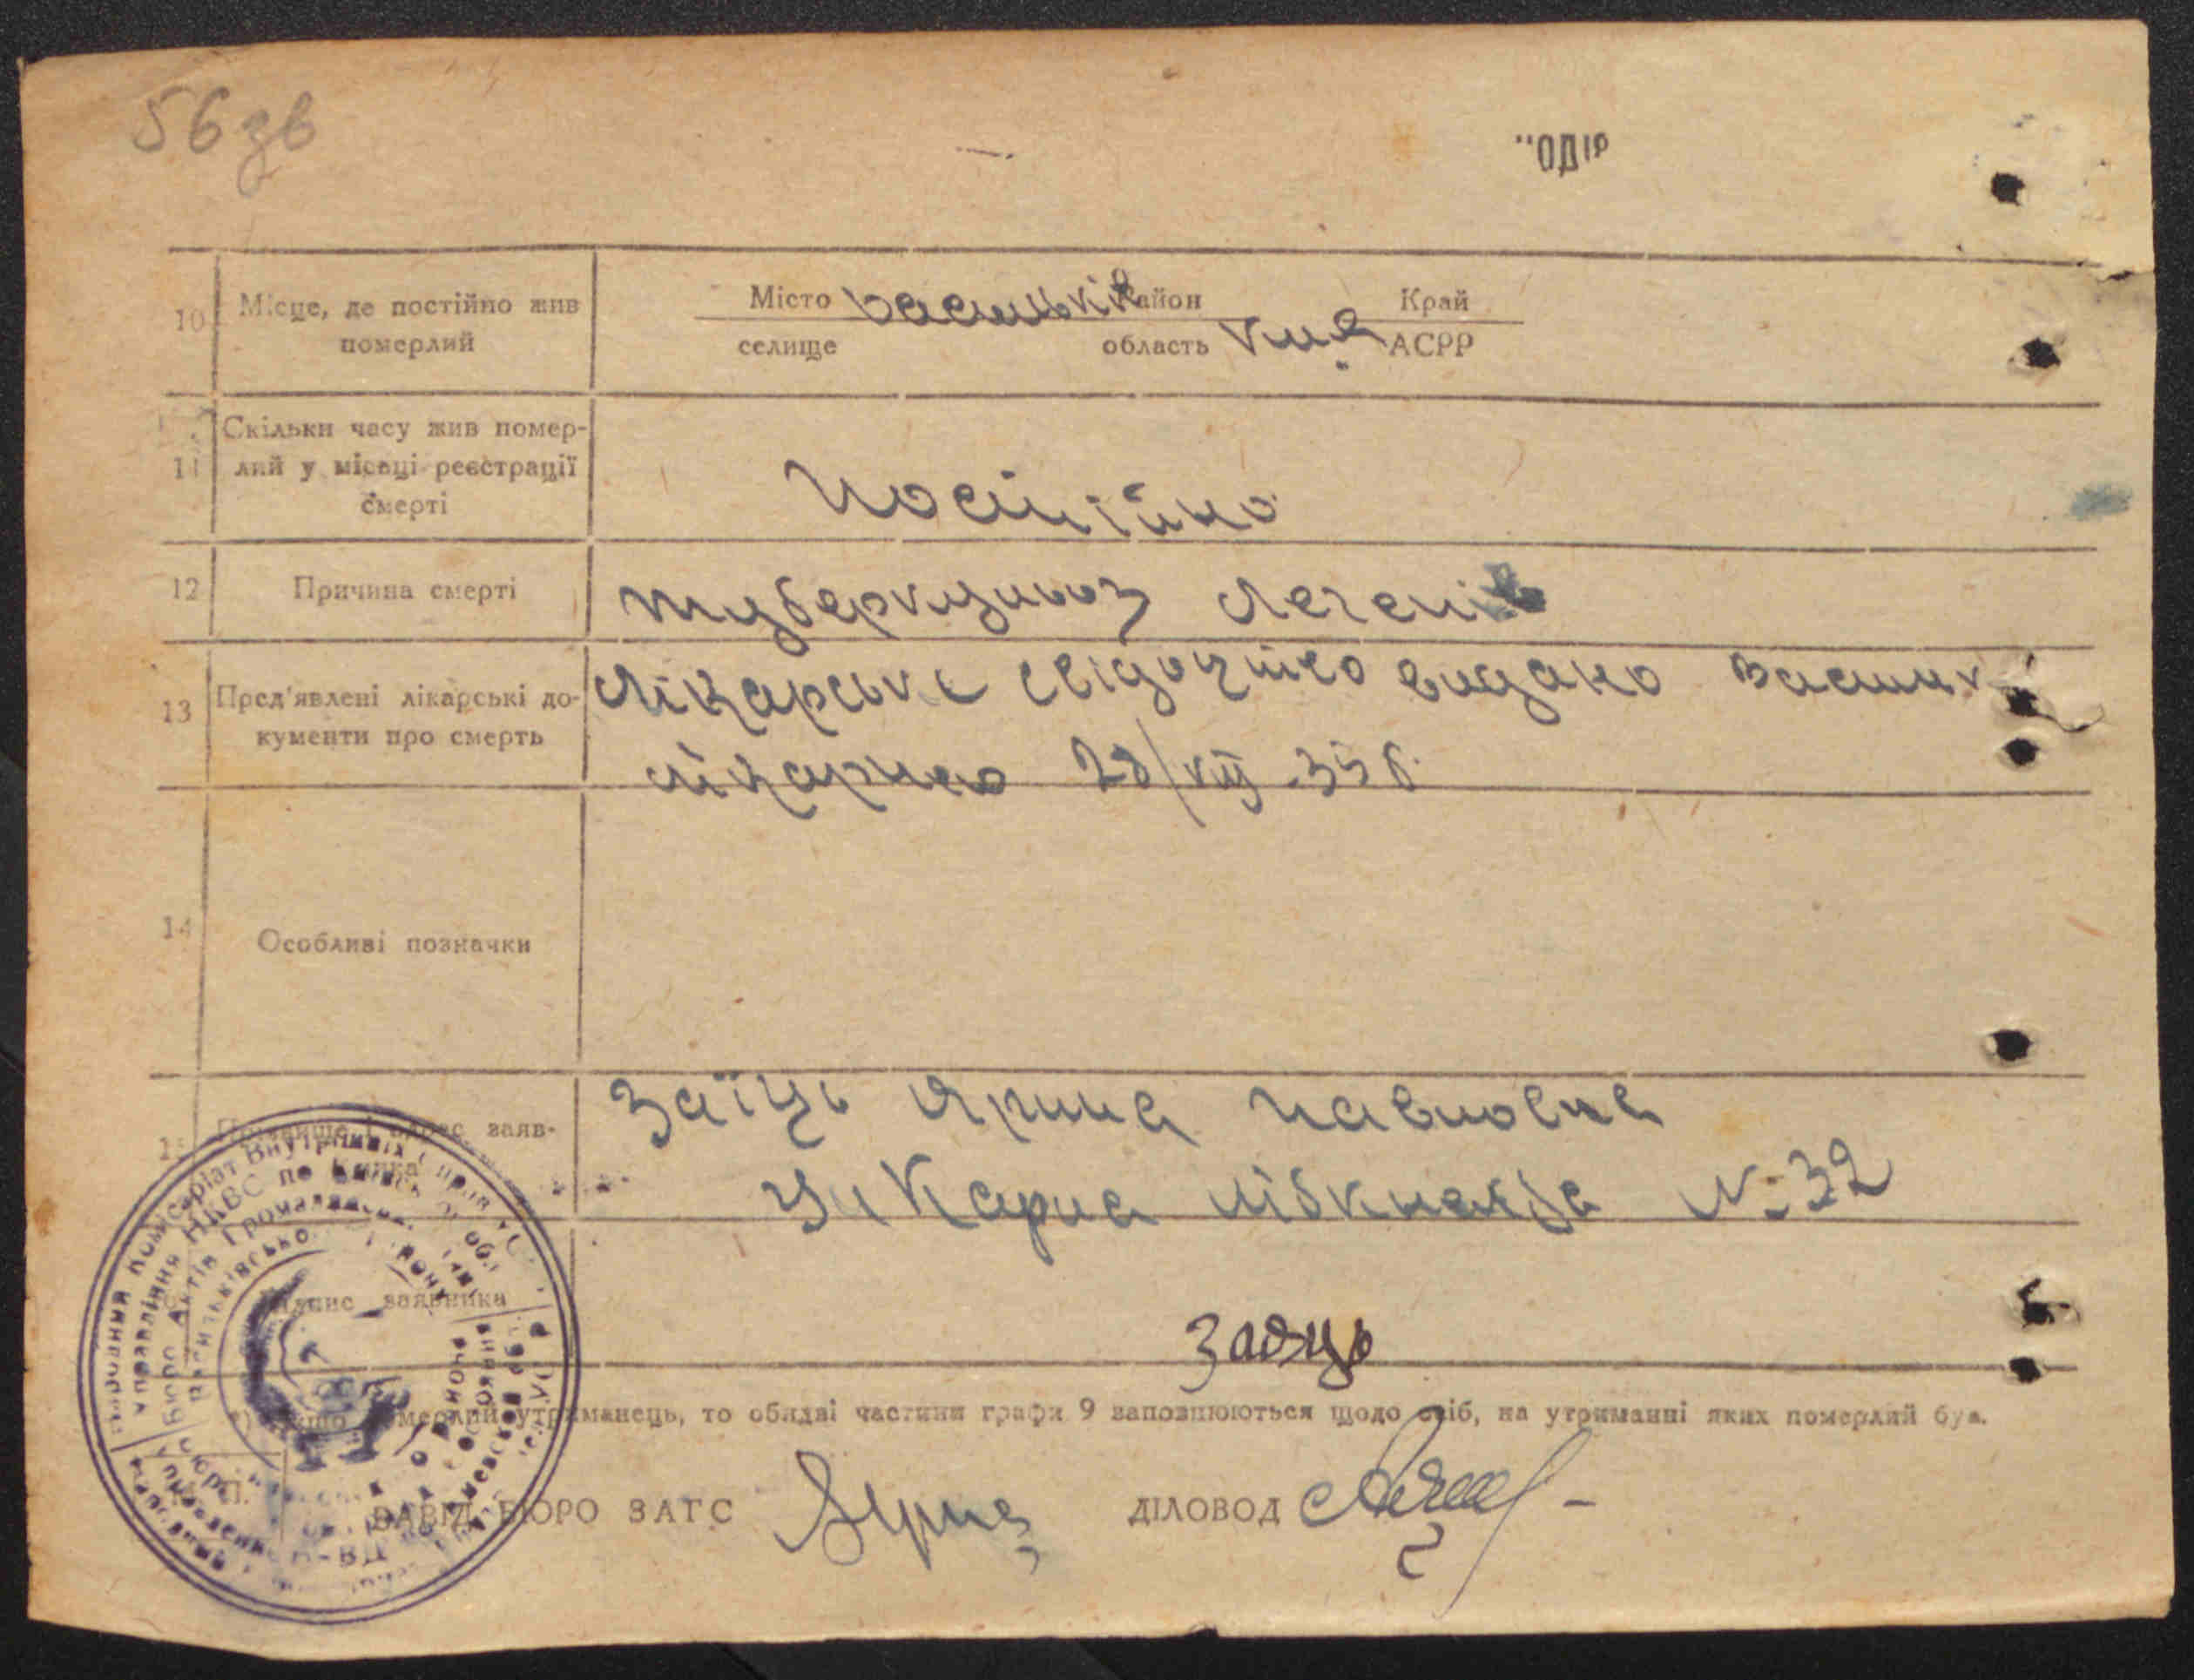 56 зв
10 Місце, де постійно жив померлий
Місто Васильків Район Край
селище область Київ АСРР
11 Скільки часу жив помер-
лий у місці реєстрації
смерті
Постійно
12 Причина смерті туберкульоз легенів
13 Пред'явлені лікарські до-
кументи про смерть
Лікарське свідоцтво видано Васильк
лікарнею 28/VIII-35 р.
14 Особливі позначки
15 адрес заяв-
Заїць Ярина Павловна
Ул Карла Лібкнехта № 32
Підпис заявника Заяць
померлий утриманець, то обидві частини графи 9 заповнюються щодо осіб, на утриманні яких померлий був.
П.
ЗАВІД. БЮРО ЗАГС ДІЛОВОД
Народний Комісаріат Внутрішніх Справ
Управління НКВС по
Бюро Актів Громадянськ.